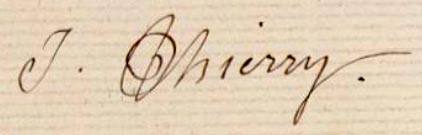 J. Thierry.